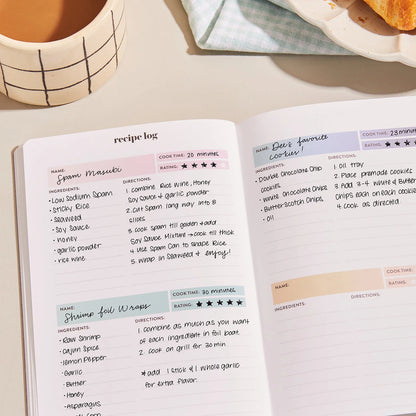 recipe log
NAME:
Spam Masubi
COOK TIME: 20 minutes
RATING: ★ ★ ★ ★
INGREDIENTS:
• Low Sodium Spam
• Sticky Rice
• Seaweed
• Soy Sauce
• Honey
• garlic powder
• rice wine
DIRECTIONS:
1. Combine Rice Wine, Honey
Soy Sauce & garlic powder
2. Cut Spam long way into 8
slices
3. Cook Spam till golden & add
Soy Sauce Mixture → cook till thick
4. Use Spam Can to Shape Rice
5. Wrap in Seaweed & enjoy!
NAME:
Shrimp foil Wraps
COOK TIME: 30 minutes
RATING: ★ ★ ★ ★ ★
INGREDIENTS:
• Raw Shrimp
• Cajun Spice
• Lemon Pepper
• Garlic
• Butter
• Honey
• Asparagus
DIRECTIONS:
1. Combine as much as you want
of each ingredient in foil boat.
2. Cook on grill for 30 min.
*add 1 stick & 1 whole garlic
for extra flavor.
NAME:
Dee's favorite
cookies
COOK TIME: 23 min
RATING: ★ ★ ★ ★
INGREDIENTS:
• Double Chocolate Chip
cookies
• White Chocolate Chips
• Butterscotch Chips
• Oil
DIRECTIONS:
1. Oil tray
2. Place premade cookies
3. Add 3-4 white & Butter
Chips each on each cookie
4. Cook as directed
NAME:
COOK TIME:
RATING:
INGREDIENTS:
DIRECTIONS: